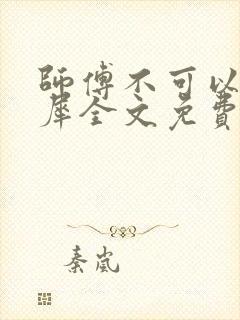 師傅不可以
犀全文免費
秦嵐